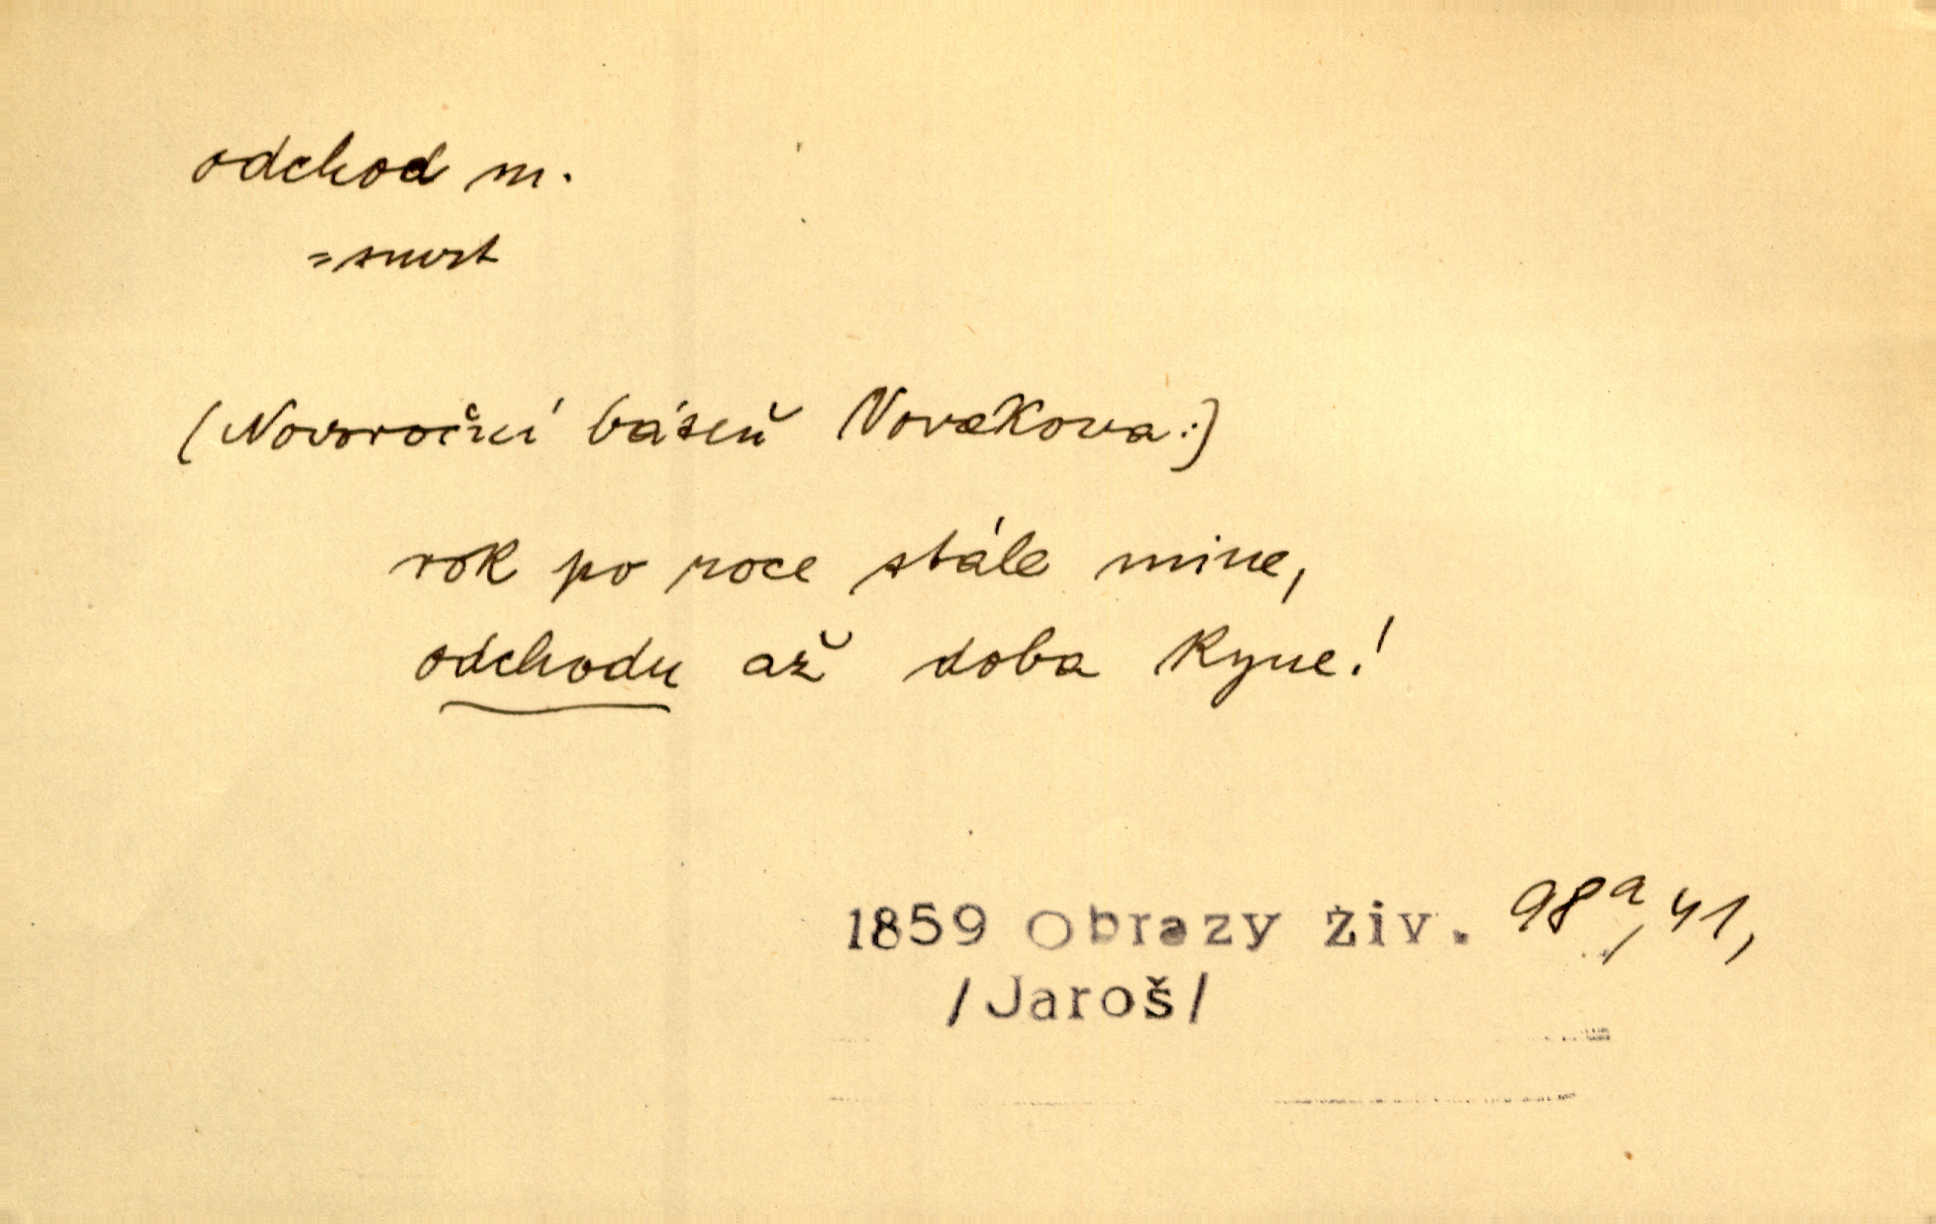 odchod m.
=smrt
(Novoroční báseň Novákova:)
rok po roce stále mine,
odchodu až doba kyne!
1859 Obrazy živ. 98a, 41,
/Jaroš/